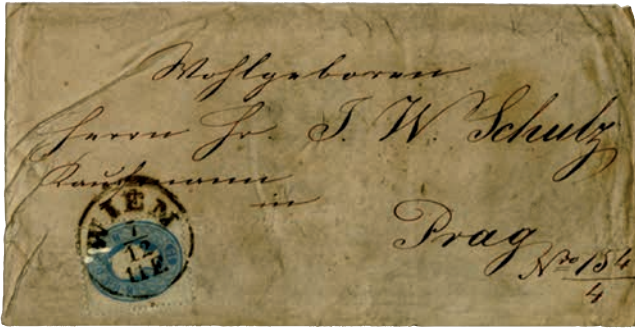 Wohlgeboren
Herrn Hr. J. W. Schulz
Kaufmann
in
Prag
Nro 154
4
WIEN
7
12
11 F.